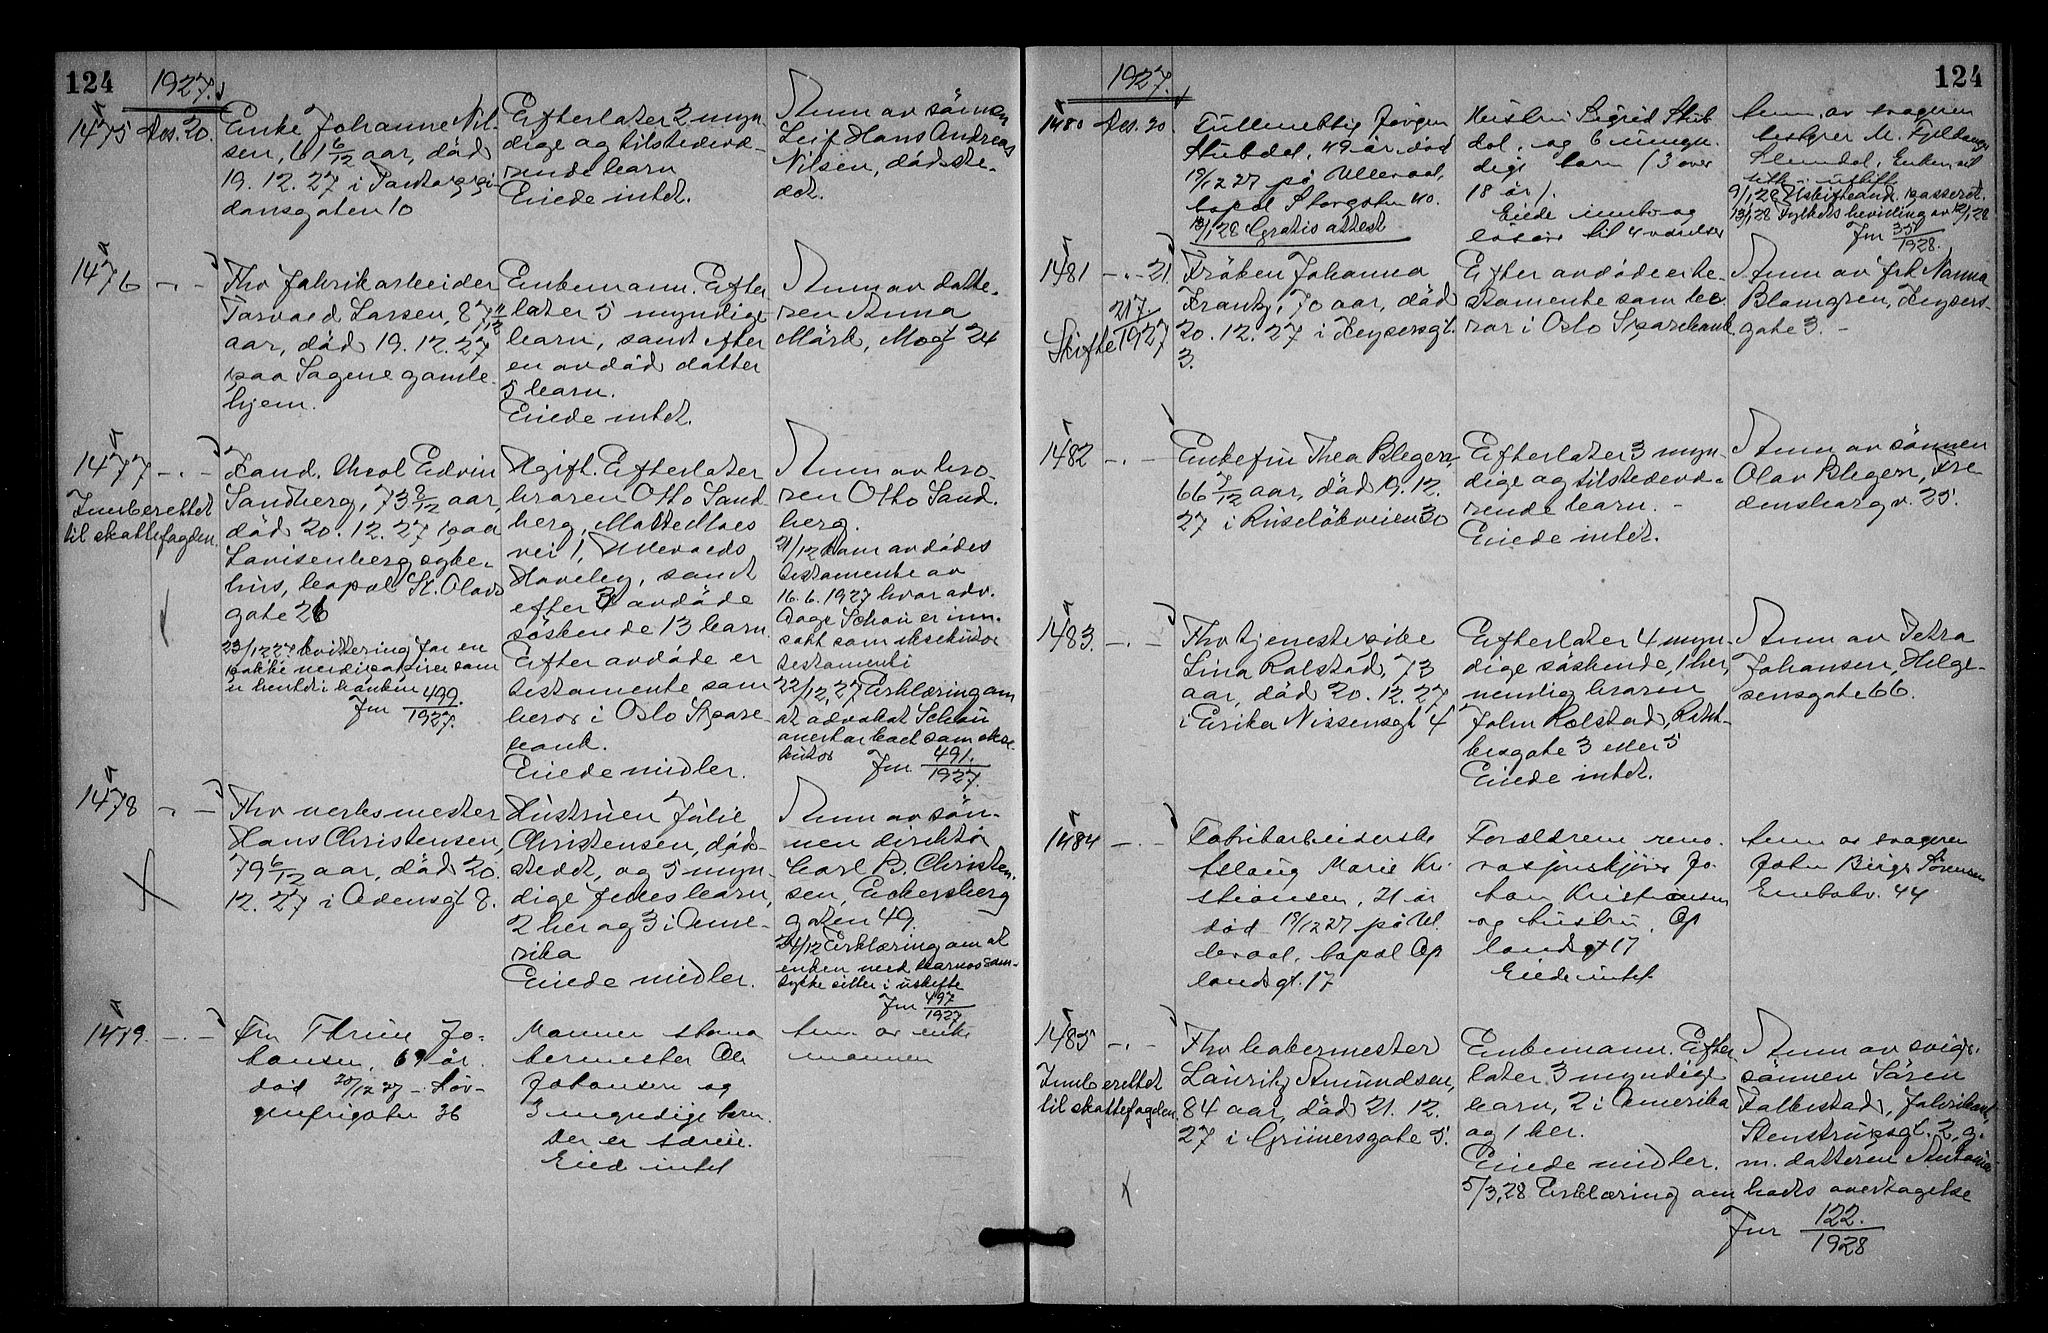 124
1927.
1475
Des. 20.
Enke Johanne Nil-
sen, 61 6/12 aar, död
19. 12. 27 i
dansgaten 10
Efterlater 2 myn-
dige og tilstedevæ-
rende barn
Eiede intet.
Anm av sönnen
Leif Hans Andreas
Nilsen, dödste-
det.
1476 -"-
Fhv fabrikarbeider
Torvald Larsen, 87 11/12
aar, död 19. 12. 27
paa Sagene gamle-
hjem.
Enkemann. Efter
later 5 myndige
barn, samt efter
en avdöd datter
5 barn.
Eiede intet.
Anm av datte-
ren Anna
Mörk, 24
1477 -"-
Innberettet
til skattefogden.
Kand. theol Edvin
Sandberg, 73 8/12 aar,
död 20. 12. 27 paa
Lovisenberg syke-
hus, bopæl St. Olavs
gate 26
23/12 27 kvittering for en
pakke verdipapirer som
er hentet i banken
Jnr 499./1927.
Ugift. Efterlater
broren Otto Sand
berg,
vei 1, Ullevaals
Haveby, samt
efter 3 avdöde
söskende 13 barn
Efter avdöde er
testamente som
beror i Oslo Spare-
bank.
Eiede midler.
Anm av bro-
ren Otto Sand.
berg.
21/12 kom avdödes
testamente av
16. 6. 1927 hvor adv.
Aage Schou er inn-
satt som eksekutor
testamenti
22/12, 27 Erklæring om
at advokat Schou
overtar boet som ekse
kutor Jnr 491./1927.
1478 -"-
Fhv verksmester
Hans Christensen,
79 6/12 aar, död 20.
12. 27 i Odensgt 8.
Hustruen Julie
Christensen, död-
stedet, og 5 myn-
dige felles barn,
2 her og 3 i Ame-
rika
Eiede midler.
Anm av sön-
nen direktör
Carl B. Christen-
sen, Eckersberg
gaten 49.
24/12 Erklæring om at
enken med barnas sam-
tykke sitter i uskifte
Jnr 497/1927
1479. -"-
Fru Thrine Jo-
hansen, 69 år.
död 20/12 27 - Löv-
genfrigaten 36
Mannen
bermester Ole
Johansen og
3 myndige barn.
Der er særeie.
Eied intet
Anm av enke
mannen
124
1927.
1480 Des. 20
Fullmektig Jörgen
Stubdal, 49 år. död
19/12 27 på Ullevaal,
bopæl Storgaten 40.
13/1 28 Gratis attest
Hustru Sigrid Stub
dal, og 6 umyn.
dige barn (3 over
18 år).
Eiede innbo og
lösöre til 4 værelser
Anm. av svogeren
M.
Enken vil
sitte i uskifte
9/1, 28 Uskifteand. passeret.
13/1 28 Fylkets bevilling av 12/1 28
Jnr 35/1928.
1481 -"- 21.
217
Skifte 1927
Fröken Johanna
Frantz, 70 aar, död
20. 12. 27 i Keysersgt.
3.
Efter avdöde er te-
stamente som be
ror i Oslo Sparebank
Anm av frk Nanna
Blomgren, Keysers-
gate 3. -
1482 -"-
Enkefru Thea Blegen,
66 7/12 aar, död 19. 12.
27 i Ruselökveien 30
Efterlater 3 myn-
dige og tilstedevæ-
rende barn. -
Eiede intet.
Anm av sönnen
Olav Blegen, Fre
densborg v. 25.
1483. -"-
Fhv tjenestepike
Lina Rolstad, 73
aar, död 20. 12. 27
i Erika Nissensgt 4
Efterlater 4 myn-
dige söskende, 1 her,
nemlig broren
John Rolstad,
gate 3 eller 5
Eiede intet.
Anm av Petra
Johansen Helge-
sensgate 66.
1484 -"-
Fabrikarbeiderske
Aslaug Marie Kri
stiansen, 21 år
död 19/12 27 på Ul
levaal, bopæl Op
landsgt. 17
Foreldrene reno
vasjonskjörer Jo
han Kristiansen
og hustru, Op
landsgt 17
Eiede intet
Anm av svogeren
John Birger Sörensen
44
1485 -"-
Innberettet
til skattefogden.
Fhv
Lauritz Amundsen,
84 aar, död 21. 12.
27 i Grünersgate 5.
Enkemann. Efter
later 3 myndige
barn, 2 i Amerika
og 1 her.
Eiede midler.
Anm av svige-
sönnen Sören
Falkestad, Fabrikant
Stenstrupsgt. 2, g.
m. datteren Antonie
5/3, 28 Erklæring om boets overtagelse
Jnr 122./1928